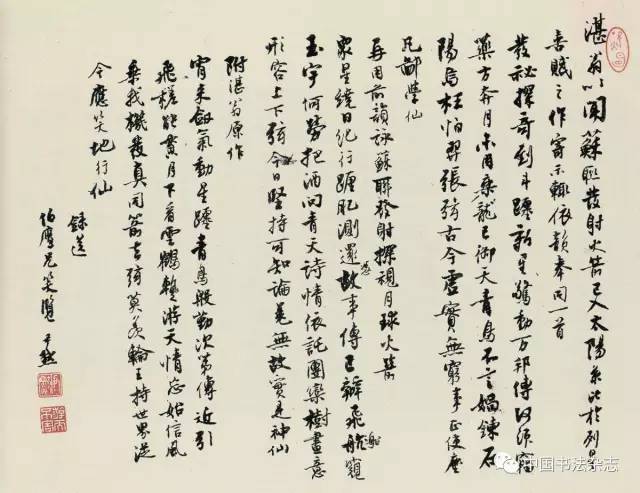 湛翁以聞蘇聯發射火箭已入太陽系比於列星
喜賦之作寄示輒依韻奉同一首
發祕探奇到斗躔新星驚動萬邦傳何須竊
藥方奔月不用乘龍已御天青鳥不言媧鍊石
陽烏枉怕羿張弦古今虛實無窮事正使塵
凡鄙學仙
再用前韻詠蘇聯發射探視月球火箭
眾星繞日紀行躔肥測還憑故事傳已辦飛船窺
玉宇何勞把酒問青天詩情依託團欒樹畫意
形容上下弦今日堅持可知論無故實是神仙
附湛翁原作
宵來劍氣動星躔青鳥殷勤次第傳近引
飛槎能貫月下看雲鶴游天情忘始信風
乘我機發真同箭去弦莫羨輪王持世界從
今應笑地行仙
錄送
伯鷹兄笑覽 尹默
中国书法杂志